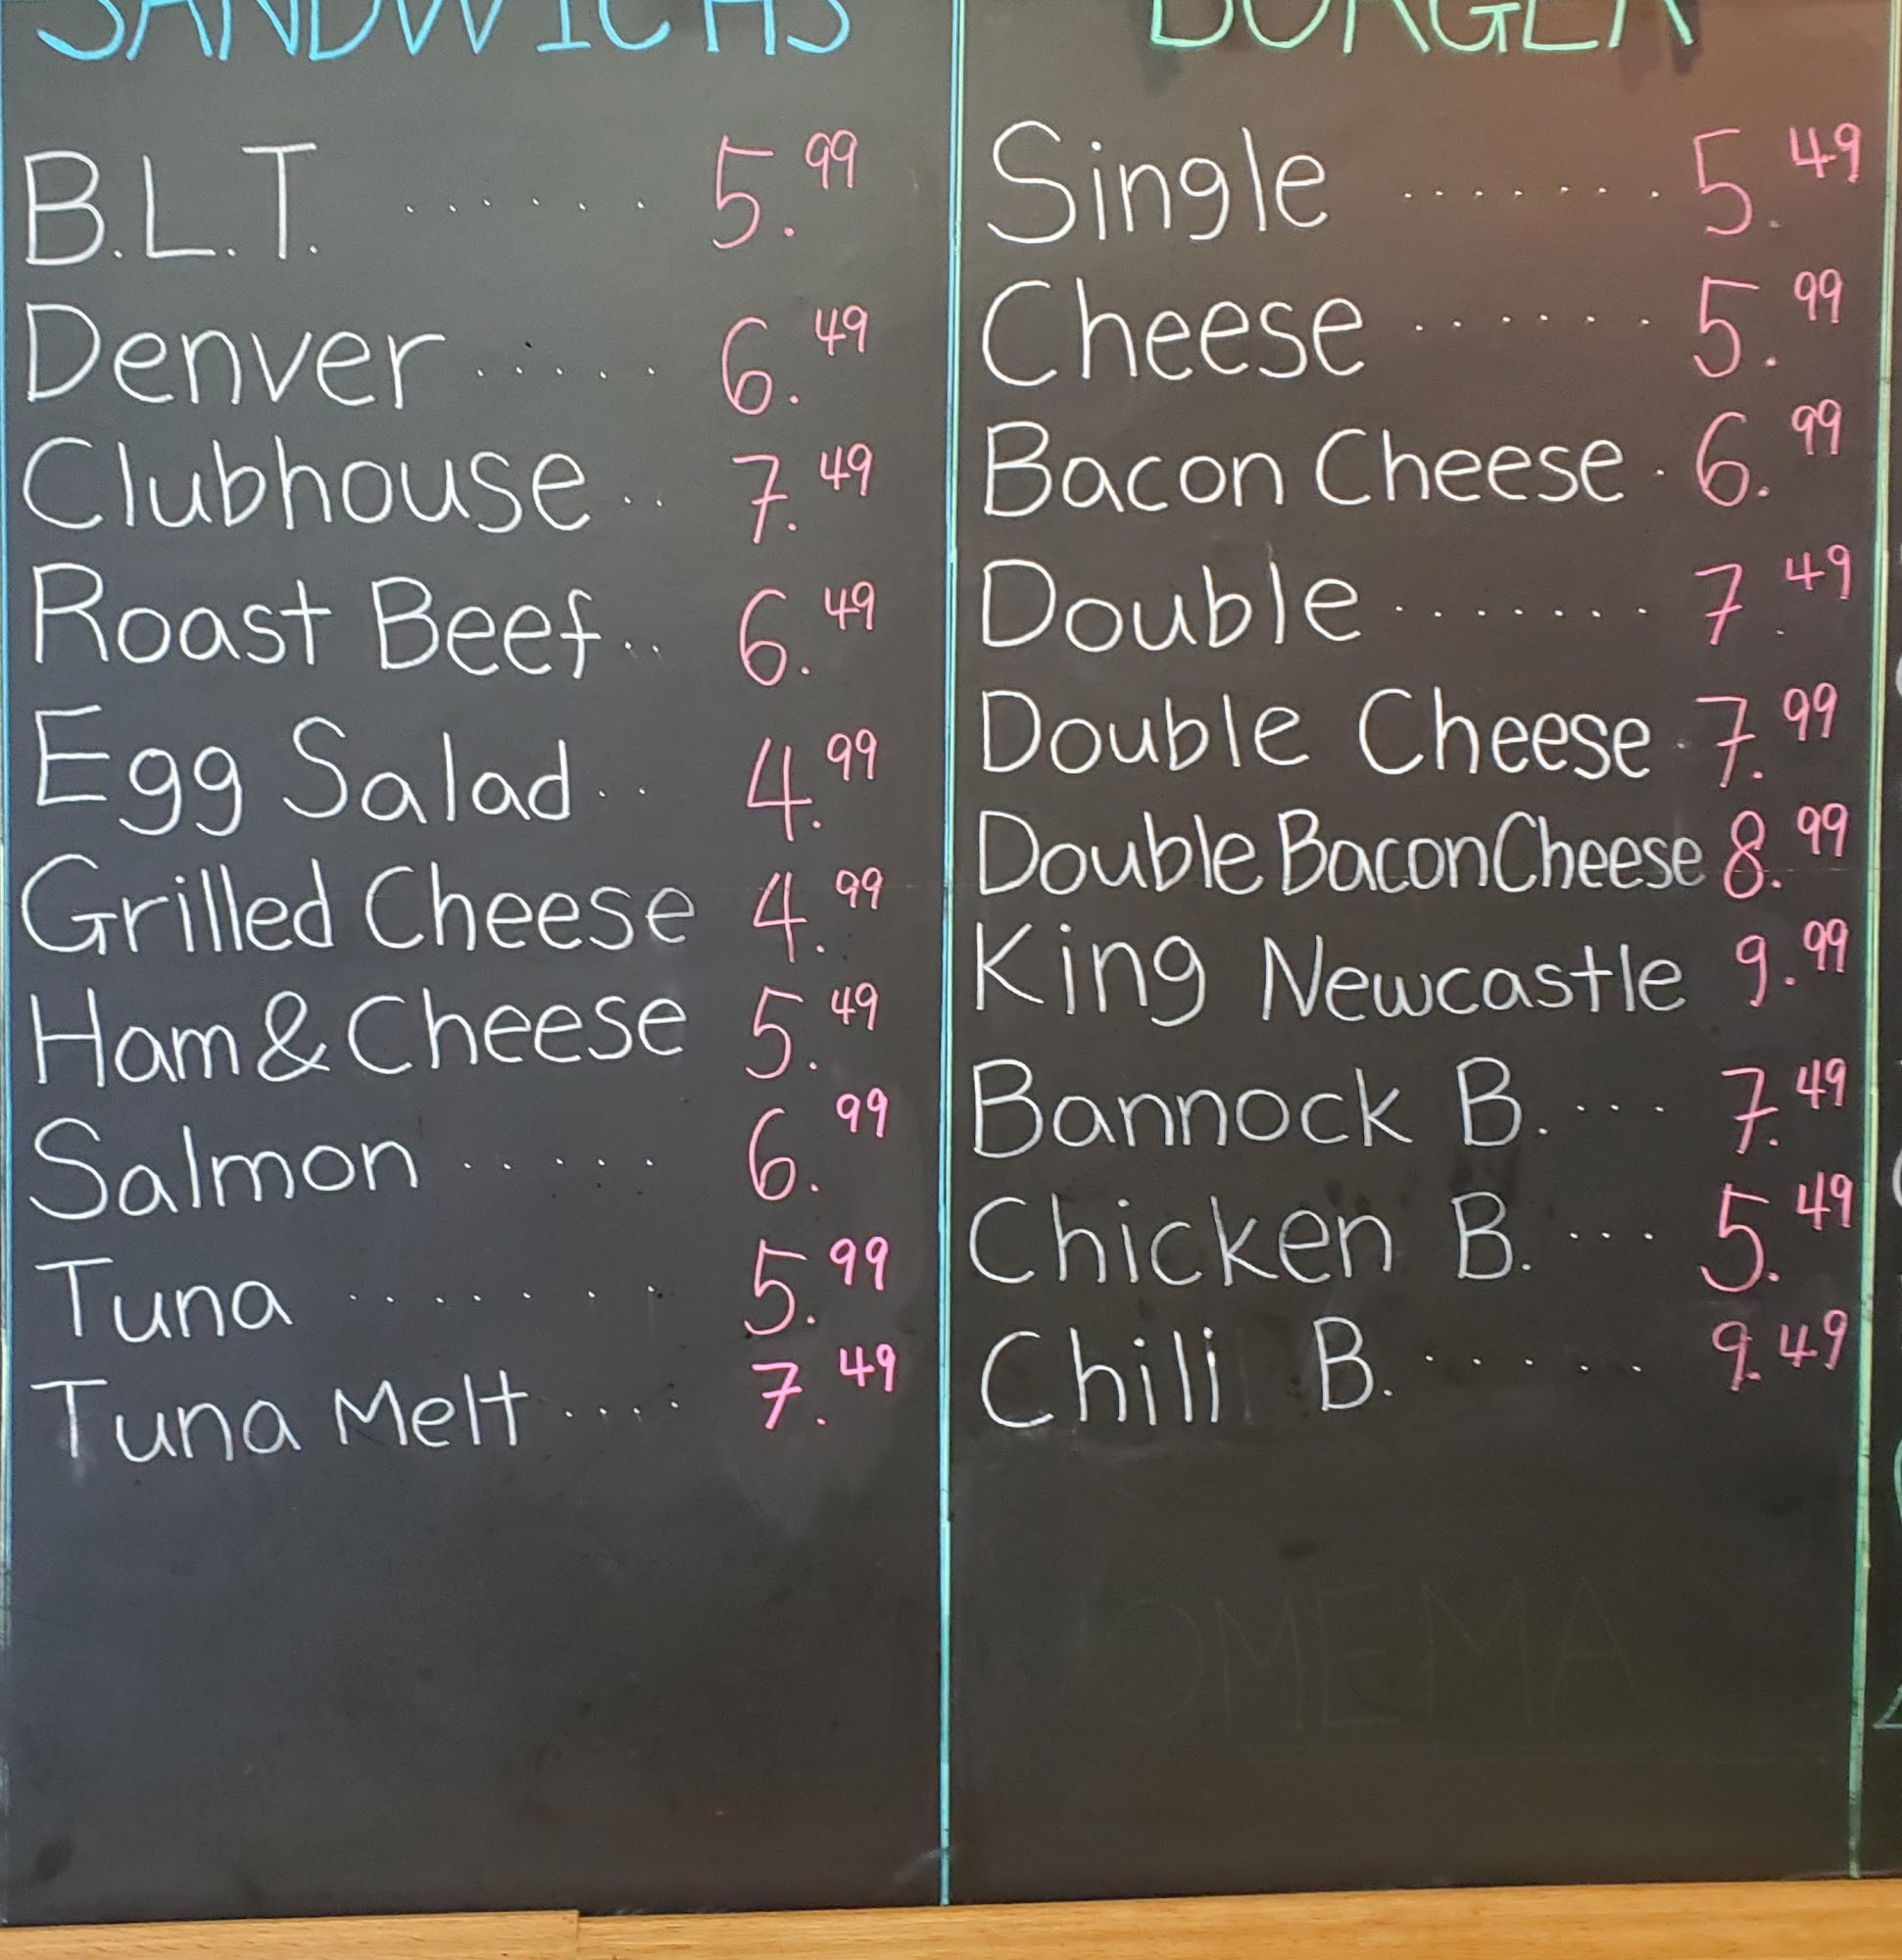 SANDWICHS
B.L.T. ...... 5.99
Denver ..... 6.49
Clubhouse .. 7.49
Roast Beef .. 6.49
Egg Salad .. 4.99
Grilled Cheese 4.99
Ham & Cheese 5.49
Salmon ..... 6.99
Tuna ....... 5.99
Tuna Melt .... 7.49
BURGER
Single ....... 5.49
Cheese ...... 5.99
Bacon Cheese . 6.99
Double ....... 7.49
Double Cheese . 7.99
Double Bacon Cheese 8.99
King Newcastle 9.99
Bannock B. ... 7.49
Chicken B. ... 5.49
Chili B. ..... 9.49